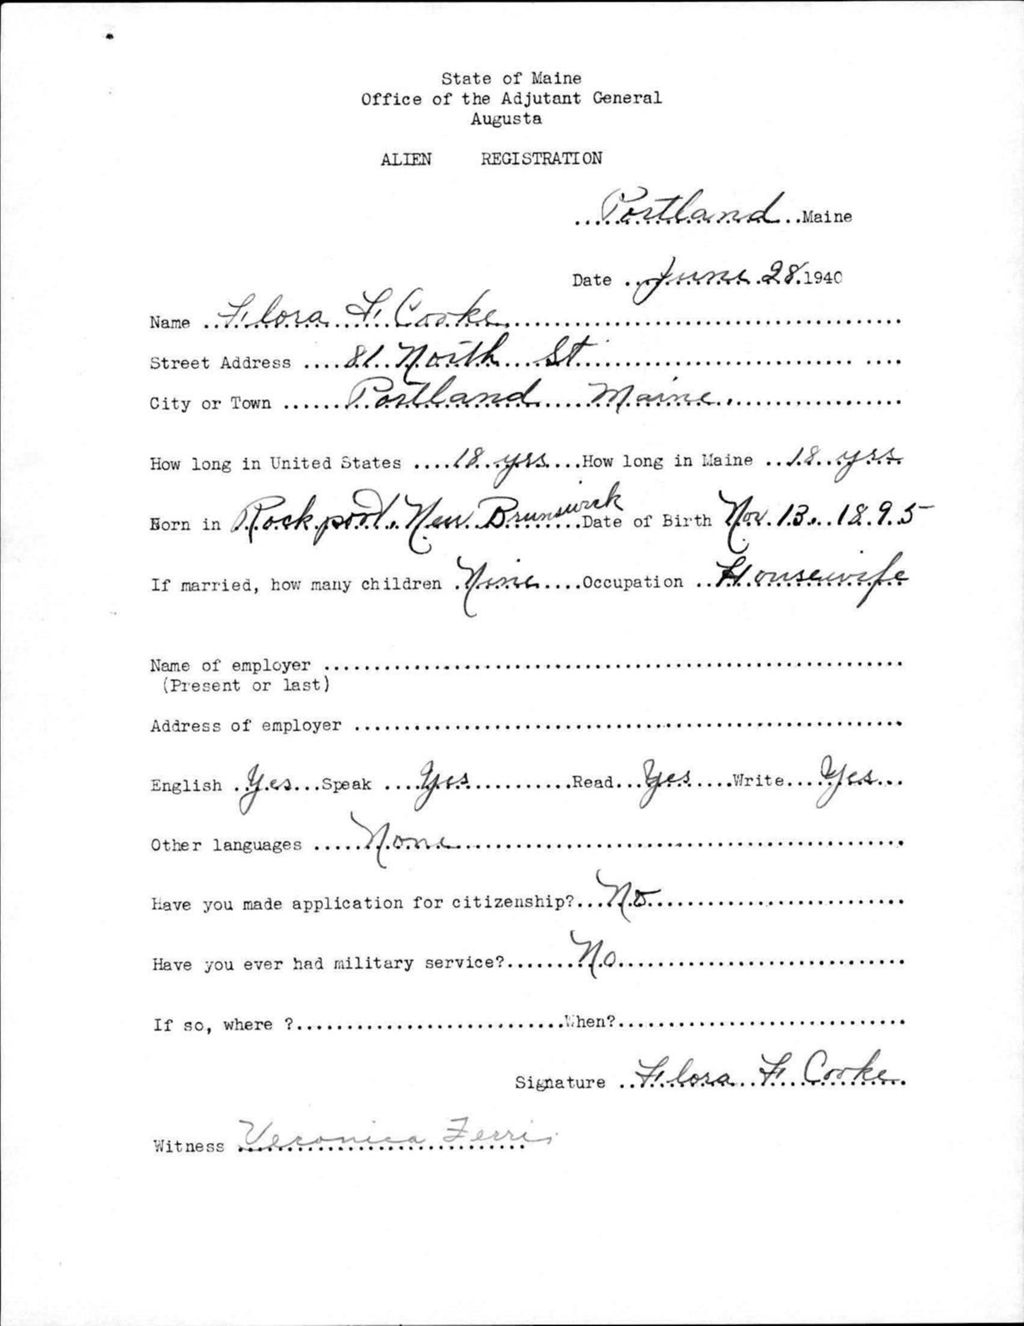 State of Maine
Office of the Adjutant General
Augusta
ALIEN REGISTRATION
Portland Maine
Date June 28 1940
Name Flora F. Cooke
Street Address 81 North St
City or Town Portland Maine
How long in United States 18 yrs How long in Maine 18 yrs.
Born in Rockport, New Brunswick Date of Birth Nov. 13, 1895
If married, how many children Nine Occupation Housewife
Name of employer
(Present or last)
Address of employer
English Yes Speak Yes Read Yes Write Yes
Other languages None
Have you made application for citizenship? No
Have you ever had military service? No
If so, where ? When?
Signature Flora F. Cooke
Witness Veronica Ferris